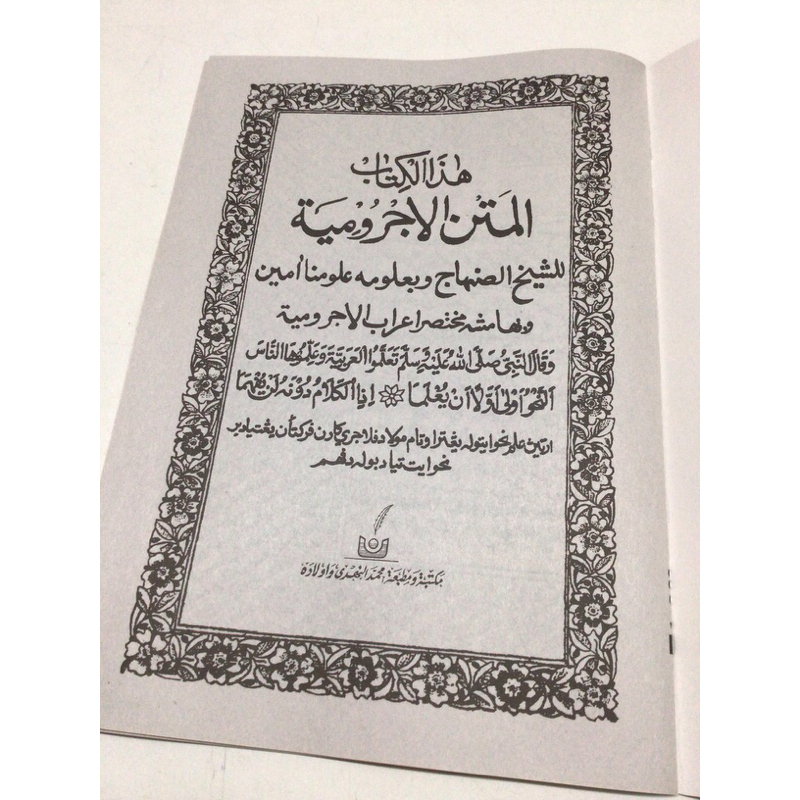 هٰذَا الكِتَابُ
المَتْنُ الاجْرُوْمِيَة
للشيخ الصنهاج وبعلومه علومنا أمين
وبهامشه مختصر اعراب الاجرومية
وَقَالَ النَّبِيُّ صَلَّى اللهُ عَلَيْهِ وَسَلَّمَ تَعَلَّمُوا العَرَبِيَّةَ وَعَلِّمُوْهَا النَّاسَ
النَّحْوُ اَوْلٰى اَوَّلاً اَنْ يُعْلَمَا ❁ اِذِ الْكَلَامُ دُوْنَهُ لَنْ يُفْهَمَا
ارتين علم نحو ايتوله يڠترا وتام مولا دفلاجري كارن فركتأن يڠ تياد بر
نحو ايت تياد بوله دفهم
مكتبة ومطبعة: محمد النهدى واولاده